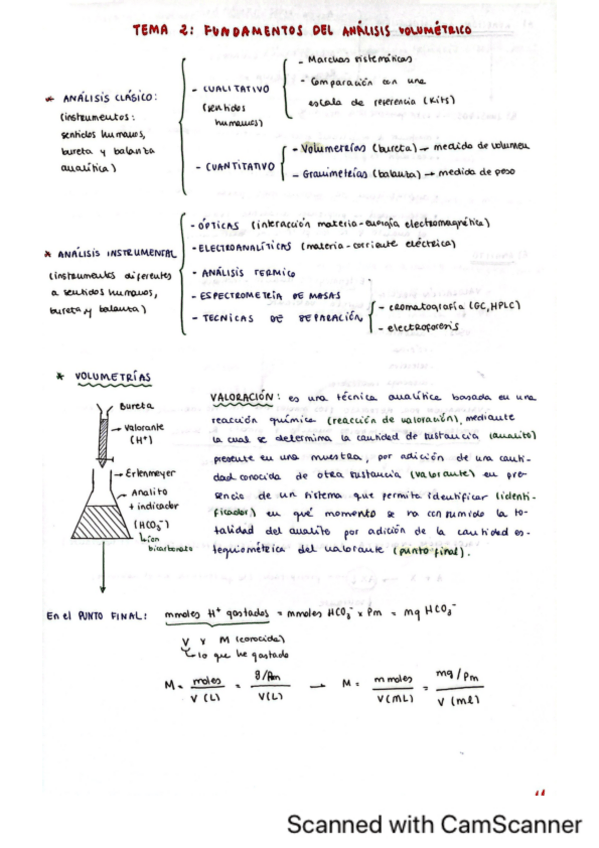 TEMA 2: FUNDAMENTOS DEL ANÁLISIS VOLUMÉTRICO
* ANÁLISIS CLÁSICO:
(instrumentos:
sentidos humanos,
bureta y balanza
analítica)
- CUALITATIVO
(sentidos
humanos)
- Marchas sistemáticas
- Comparación con una
escala de referencia (kits)
- CUANTITATIVO
- Volumetrías (bureta) → medida de volumen
- Gravimetrías (balanza) → medida de peso
* ANÁLISIS INSTRUMENTAL
(instrumentos diferentes
a sentidos humanos,
bureta y balanza)
- ÓPTICAS (interacción materia-energía electromagnética)
- ELECTROANALÍTICAS (materia-corriente eléctrica)
- ANÁLISIS TERMICO
- ESPECTROMETRÍA DE MASAS
- TECNICAS DE SEPARACIÓN
- cromatografía (GC, HPLC)
- electroforesis
* VOLUMETRÍAS
Bureta
→ Valorante
(H⁺)
→ Erlenmeyer
→ Analito
+ indicador
(HCO₃⁻)
↳ ion
bicarbonato
VALORACIÓN: es una técnica analítica basada en una
reacción química (reacción de valoración), mediante
la cual se determina la cantidad de sustancia (analito)
presente en una muestra, por adición de una canti-
dad conocida de otra sustancia (valorante) en pre-
sencia de un sistema que permite identificar (identi-
ficador) en qué momento se ha consumido la to-
talidad del analito por adición de la cantidad es-
tequiométrica del valorante (punto final).
En el PUNTO FINAL: mmoles H⁺ gastados = mmoles HCO₃⁻ x Pm = mg HCO₃⁻
V x M (conocida)
↳ lo que he gastado
M = moles / V (L) = g/Pm / V(L) → M = mmoles / V(mL) = mg/Pm / V (ml)
Scanned with CamScanner